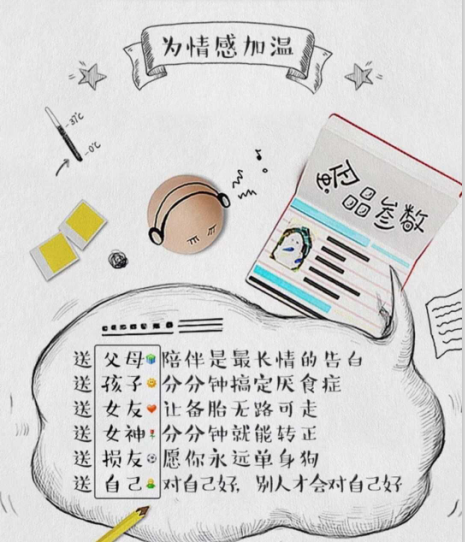 为情感加温
37℃
0℃
食品参数
送 父母 陪伴是最长情的告白
送 孩子 分分钟搞定厌食症
送 女友 让备胎无路可走
送 女神 分分钟就能转正
送 损友 愿你永远单身狗
送 自己 对自己好，别人才会对自己好